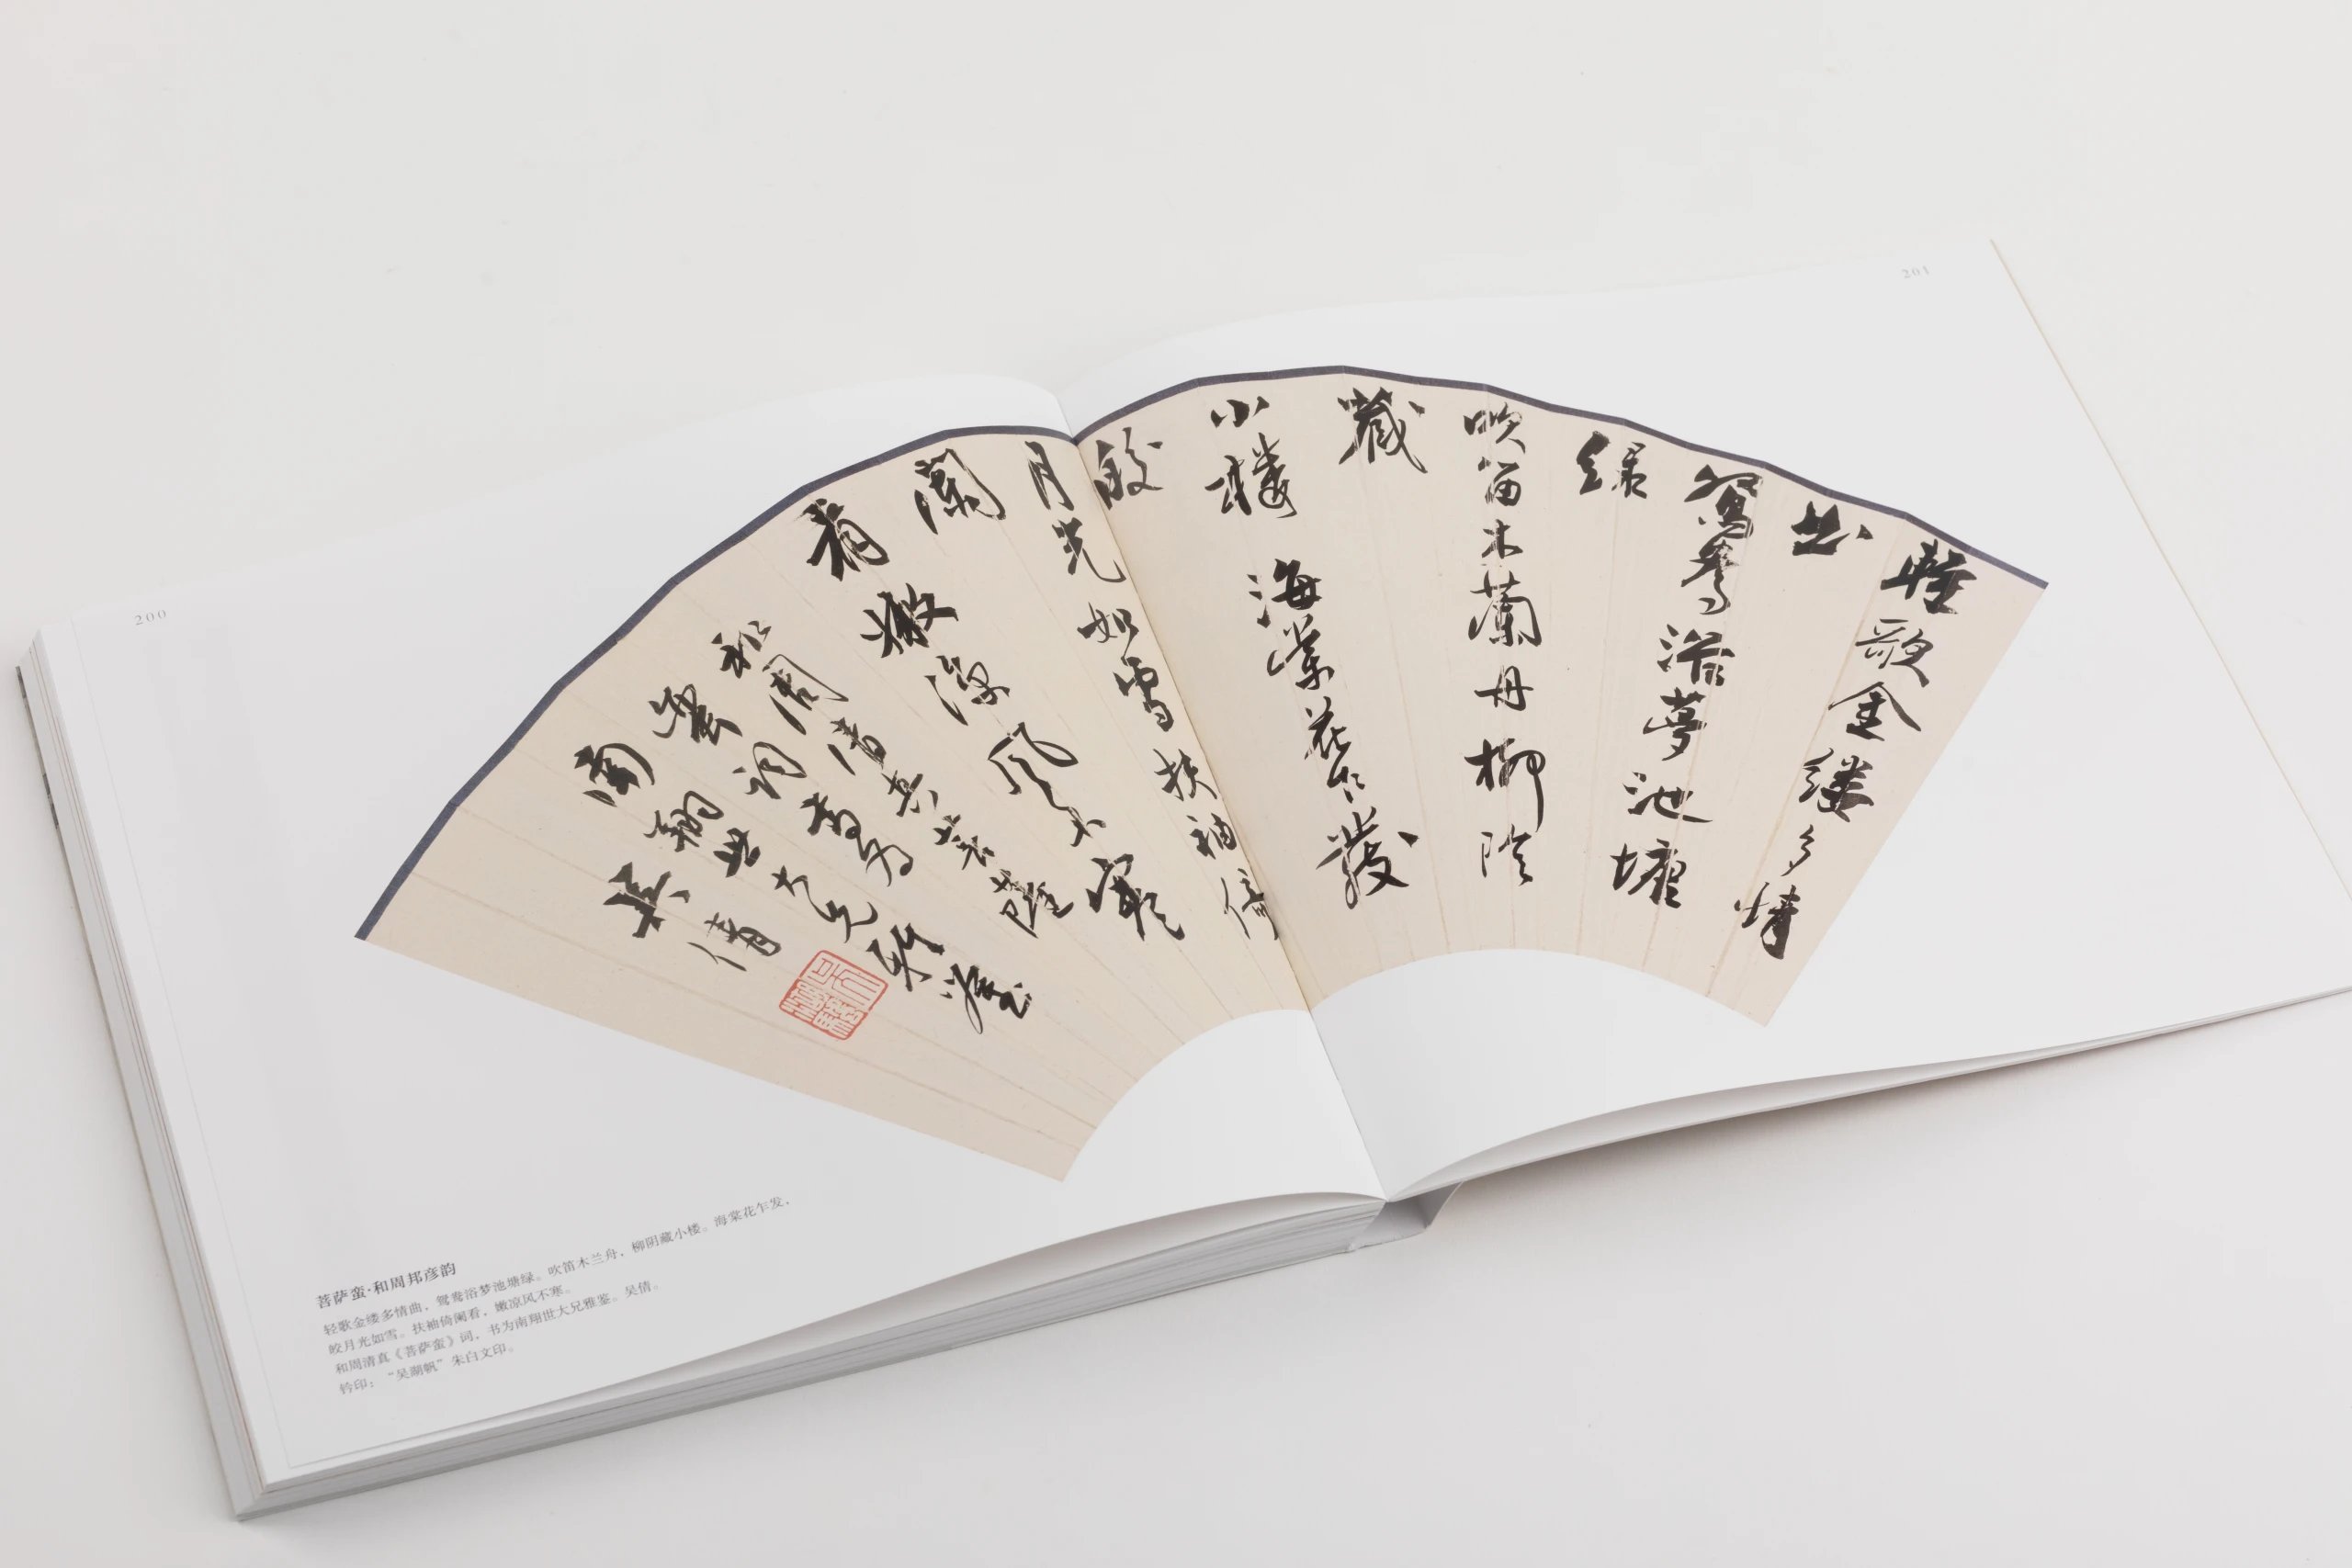 201
輕歌金縷多情
曲
鴛鴦浴夢池塘
緑
吹笛木蘭舟柳陰
藏
小樓海棠花乍發
皎
月光如雪扶袖倚
闌
看嫩涼風不寒
和周清真菩薩
蠻詞書為
南翔世大兄雅鑒
吳倩
200
菩萨蛮·和周邦彦韵
轻歌金缕多情曲，鸳鸯浴梦池塘绿。吹笛木兰舟，柳阴藏小楼。海棠花乍发，
皎月光如雪。扶袖倚阑看，嫩凉风不寒。
和周清真《菩萨蛮》词，书为南翔世大兄雅鉴。吴倩。
钤印：“吴湖帆”朱白文印。